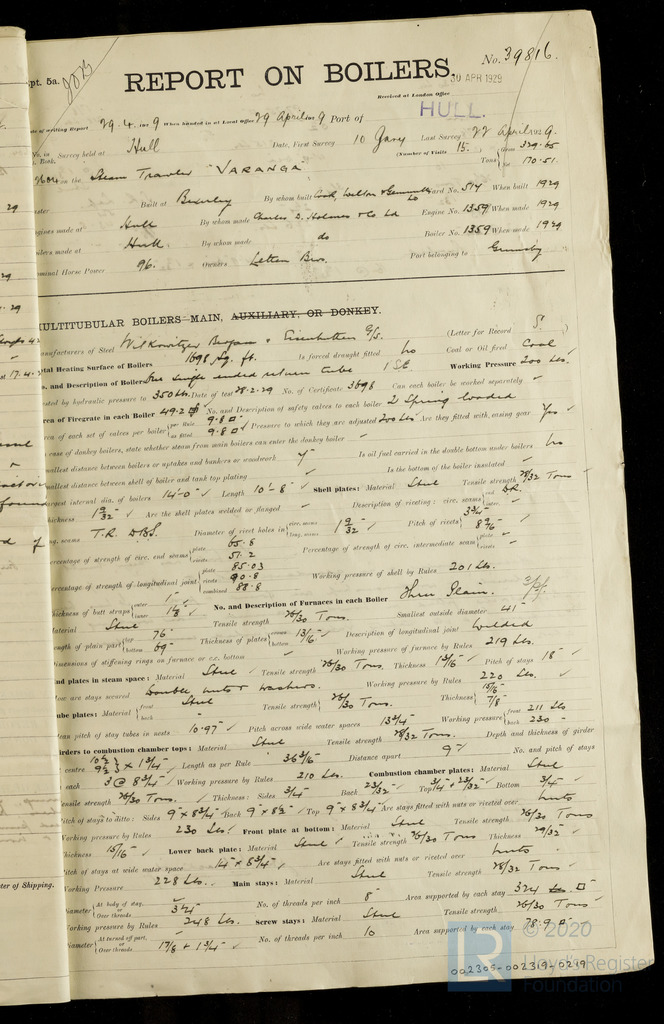 pt. 5a.
No. 39816.
REPORT ON BOILERS.
30 APR 1929
Received at London Office
HULL.
of writing Report 29.4.1929 When handed in at Local Office 29 April 1929 Port of
No. in Survey held at Hull Date, First Survey 10 Jany Last Survey 27 April 1929.
Book. (Number of Visits 15.) Gross 329.65
on the Steam Trawler "VARANGA" Tons 170.51.
Built at Beverley By whom built Cook, Welton & Gemmell Ld Yard No. 514 When built 1929
gines made at Hull By whom made Charles D. Holmes & Co Ld Engine No. 1359 When made 1929
oilers made at Hull By whom made do Boiler No. 1359 When made 1929
ominal Horse Power 96. Owners Letten Bros. Port belonging to Grimsby
MULTITUBULAR BOILERS—MAIN, AUXILIARY, OR DONKEY.
anufacturers of Steel Witkowitzer (Letter for Record S.)
tal Heating Surface of Boilers 1698 Sq. ft. Is forced draught fitted No Coal or Oil fired Coal
o. and Description of Boilers One single ended return tube 1 SE Working Pressure 200 Lbs.
ested by hydraulic pressure to 350 Lbs. Date of test 28.2.29 No. of Certificate 3698 Can each boiler be worked separately
rea of Firegrate in each Boiler 49.2 No. and Description of safety valves to each boiler 2 Spring loaded
rea of each set of valves per boiler { per Rule 9.8 as fitted 9.8 Pressure to which they are adjusted 200 Lbs Are they fitted with easing gear Yes
case of donkey boilers, state whether steam from main boilers can enter the donkey boiler
mallest distance between boilers or uptakes and bunkers or woodwork Is oil fuel carried in the double bottom under boilers No
mallest distance between shell of boiler and tank top plating Is the bottom of the boiler insulated
argest internal dia. of boilers 14'-0" Length 10'-8" Shell plates: Material Steel Tensile strength 28/32 Tons
hickness 1 9/32 Are the shell plates welded or flanged Description of riveting: circ. seams { end D.R. inter.
ng. seams T.R. D.B.S. Diameter of rivet holes in { circ. seams long. seams 1 9/32 Pitch of rivets { 3 3/4 8 9/16
ercentage of strength of circ. end seams { plate 65.8 rivets 51.2 Percentage of strength of circ. intermediate seam { plate rivets
ercentage of strength of longitudinal joint { plate 85.03 rivets 90.8 combined 88.8 Working pressure of shell by Rules 201 Lbs.
hickness of butt straps { outer 1" inner 1 1/8 No. and Description of Furnaces in each Boiler Three Plain.
aterial Steel Tensile strength 26/30 Tons. Smallest outside diameter 41"
ength of plain part { top 76" bottom 69" Thickness of plates { crown bottom 13/16 Description of longitudinal joint Welded
imensions of stiffening rings on furnace or c.c. bottom Working pressure of furnace by Rules 219 Lbs.
nd plates in steam space: Material Steel Tensile strength 26/30 Tons. Thickness 1 3/16 Pitch of stays 18"
ow are stays secured Double nuts & washers. Working pressure by Rules 220 Lbs.
ube plates: Material { front back Steel Tensile strength { 26/30 Tons. Thickness { 15/16 7/8
ean pitch of stay tubes in nests 10.97 Pitch across wide water spaces 13 3/4 Working pressure { front 211 Lbs back 230
irders to combustion chamber tops: Material Steel Tensile strength 28/32 Tons. Depth and thickness of girder
centre 10 1/2 9 1/2 } x 1 3/4 Length as per Rule 36 3/16 Distance apart 9" No. and pitch of stays
each 3 @ 8 3/4 Working pressure by Rules 210 Lbs. Combustion chamber plates: Material Steel
ensile strength 26/30 Tons. Thickness: Sides 3/4 Back 23/32 Top 3/4 & 23/32 Bottom 3/4
itch of stays to ditto: Sides 9" x 8 3/4 Back 9" x 8 1/2 Top 9" x 8 3/4 Are stays fitted with nuts or riveted over Nuts
orking pressure by Rules 230 Lbs. Front plate at bottom: Material Steel Tensile strength 26/30 Tons
hickness 15/16 Lower back plate: Material Steel Tensile strength 26/30 Tons Thickness 29/32
itch of stays at wide water space 14" x 8 3/4 Are stays fitted with nuts or riveted over Nuts
orking Pressure 228 Lbs. Main stays: Material Steel Tensile strength 28/32 Tons
iameter { At body of stay, or Over threads 3 1/4 No. of threads per inch 8 Area supported by each stay 324
orking pressure by Rules 248 Lbs. Screw stays: Material Steel Tensile strength 26/30 Tons
iameter { At turned off part, or Over threads 1 7/8 & 1 3/4 No. of threads per inch 10 Area supported by each stay 78.9
ter of Shipping.
© 2020
LR
Lloyd's Register
Foundation
002305-002319-0299